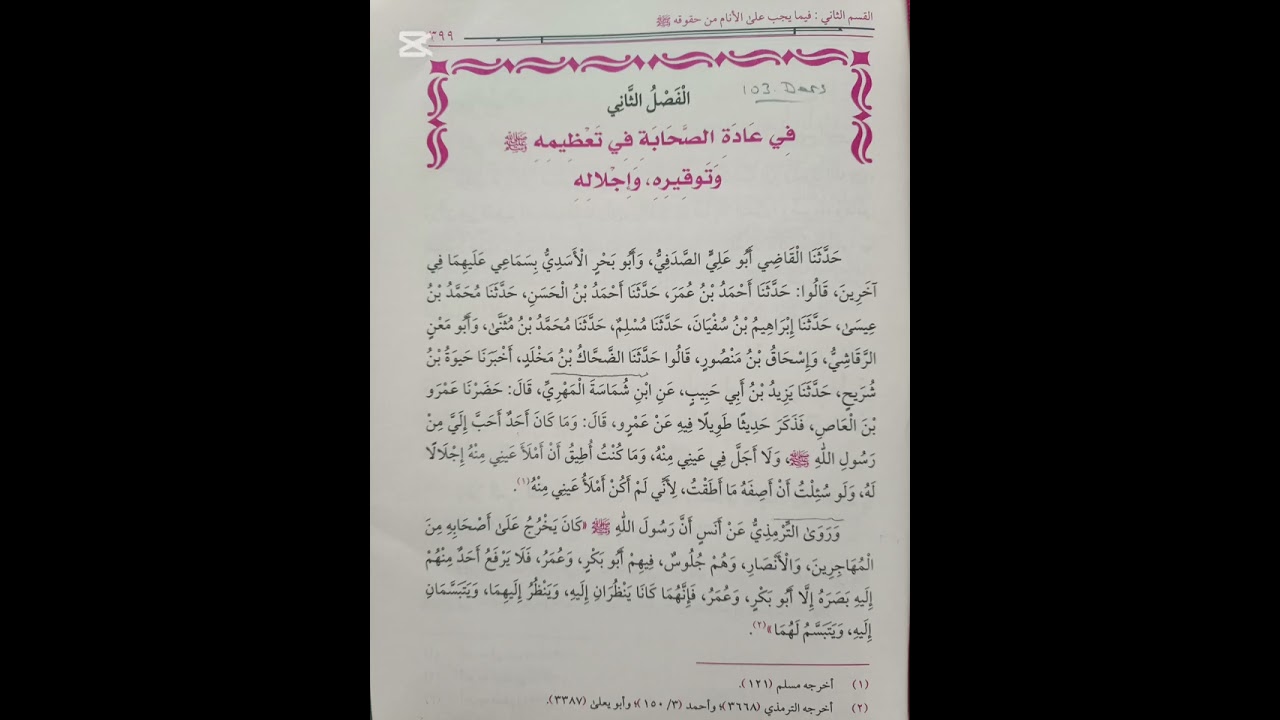 القسم الثاني : فيما يجب على الأنام من حقوقه ﷺ
٣٩٩
103. Ders
الْفَصْلُ الثَّانِي
فِي عَادَةِ الصَّحَابَةِ فِي تَعْظِيمِهِ ﷺ
وَتَوْقِيرِهِ، وَإِجْلَالِهِ
حَدَّثَنَا الْقَاضِي أَبُو عَلِيٍّ الصَّدَفِيُّ، وَأَبُو بَحْرٍ الْأَسَدِيُّ بِسَمَاعِي عَلَيْهِمَا فِي
آخَرِينَ، قَالُوا: حَدَّثَنَا أَحْمَدُ بْنُ عُمَرَ، حَدَّثَنَا أَحْمَدُ بْنُ الْحَسَنِ، حَدَّثَنَا مُحَمَّدُ بْنُ
عِيسَىٰ، حَدَّثَنَا إِبْرَاهِيمُ بْنُ سُفْيَانَ، حَدَّثَنَا مُسْلِمٌ، حَدَّثَنَا مُحَمَّدُ بْنُ مُثَنَّىٰ، وَأَبُو مَعْنٍ
الرَّقَاشِيُّ، وَإِسْحَاقُ بْنُ مَنْصُورٍ، قَالُوا حَدَّثَنَا الضَّحَّاكُ بْنُ مَخْلَدٍ، أَخْبَرَنَا حَيْوَةُ بْنُ
شُرَيْحٍ، حَدَّثَنَا يَزِيدُ بْنُ أَبِي حَبِيبٍ، عَنِ ابْنِ شُمَاسَةَ الْمَهْرِيِّ، قَالَ: حَضَرْنَا عَمْرَو
بْنَ الْعَاصِ، فَذَكَرَ حَدِيثًا طَوِيلًا فِيهِ عَنْ عَمْرٍو، قَالَ: وَمَا كَانَ أَحَدٌ أَحَبَّ إِلَيَّ مِنْ
رَسُولِ اللَّهِ ﷺ، وَلَا أَجَلَّ فِي عَيْنِي مِنْهُ، وَمَا كُنْتُ أُطِيقُ أَنْ أَمْلَأَ عَيْنِي مِنْهُ إِجْلَالًا
لَهُ، وَلَو سُئِلْتُ أَنْ أَصِفَهُ مَا أَطَقْتُ، لِأَنِّي لَمْ أَكُنْ أَمْلَأُ عَيْنِي مِنْهُ(١).
وَرَوَىٰ التِّرْمِذِيُّ عَنْ أَنَسٍ أَنَّ رَسُولَ اللَّهِ ﷺ «كَانَ يَخْرُجُ عَلَىٰ أَصْحَابِهِ مِنَ
الْمُهَاجِرِينَ، وَالْأَنْصَارِ، وَهُمْ جُلُوسٌ، فِيهِمْ أَبُو بَكْرٍ، وَعُمَرُ، فَلَا يَرْفَعُ أَحَدٌ مِنْهُمْ
إِلَيهِ بَصَرَهُ إِلَّا أَبُو بَكْرٍ، وَعُمَرُ، فَإِنَّهُمَا كَانَا يَنْظُرَانِ إِلَيهِ، وَيَنْظُرُ إِلَيهِمَا، وَيَتَبَسَّمَانِ
إِلَيهِ، وَيَتَبَسَّمُ لَهُمَا»(٢).
(١) أخرجه مسلم (١٢١).
(٢) أخرجه الترمذي (٣٦٦٨)؛ وأحمد (٣/ ١٥٠)؛ وأبو يعلىٰ (٣٣٨٧).